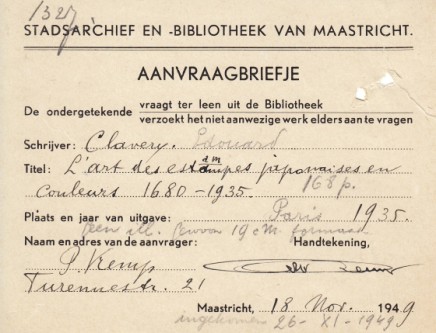 1327
STADSARCHIEF EN -BIBLIOTHEEK VAN MAASTRICHT.
AANVRAAGBRIEFJE
De ondergetekende vraagt ter leen uit de Bibliotheek
verzoekt het niet aanwezige werk elders aan te vragen
Schrijver: Clavery, Edouard
Titel: L'art des estampes japonaises en
couleurs 1680-1935. 168 p.
Plaats en jaar van uitgave: Paris 1935.
geen ill. 19 cM. formaat
Naam en adres van de aanvrager: Handtekening,
P. Kemp
Turennestr. 21
Maastricht, 18 Nov. 1949
ingekomen 26-XI-1949